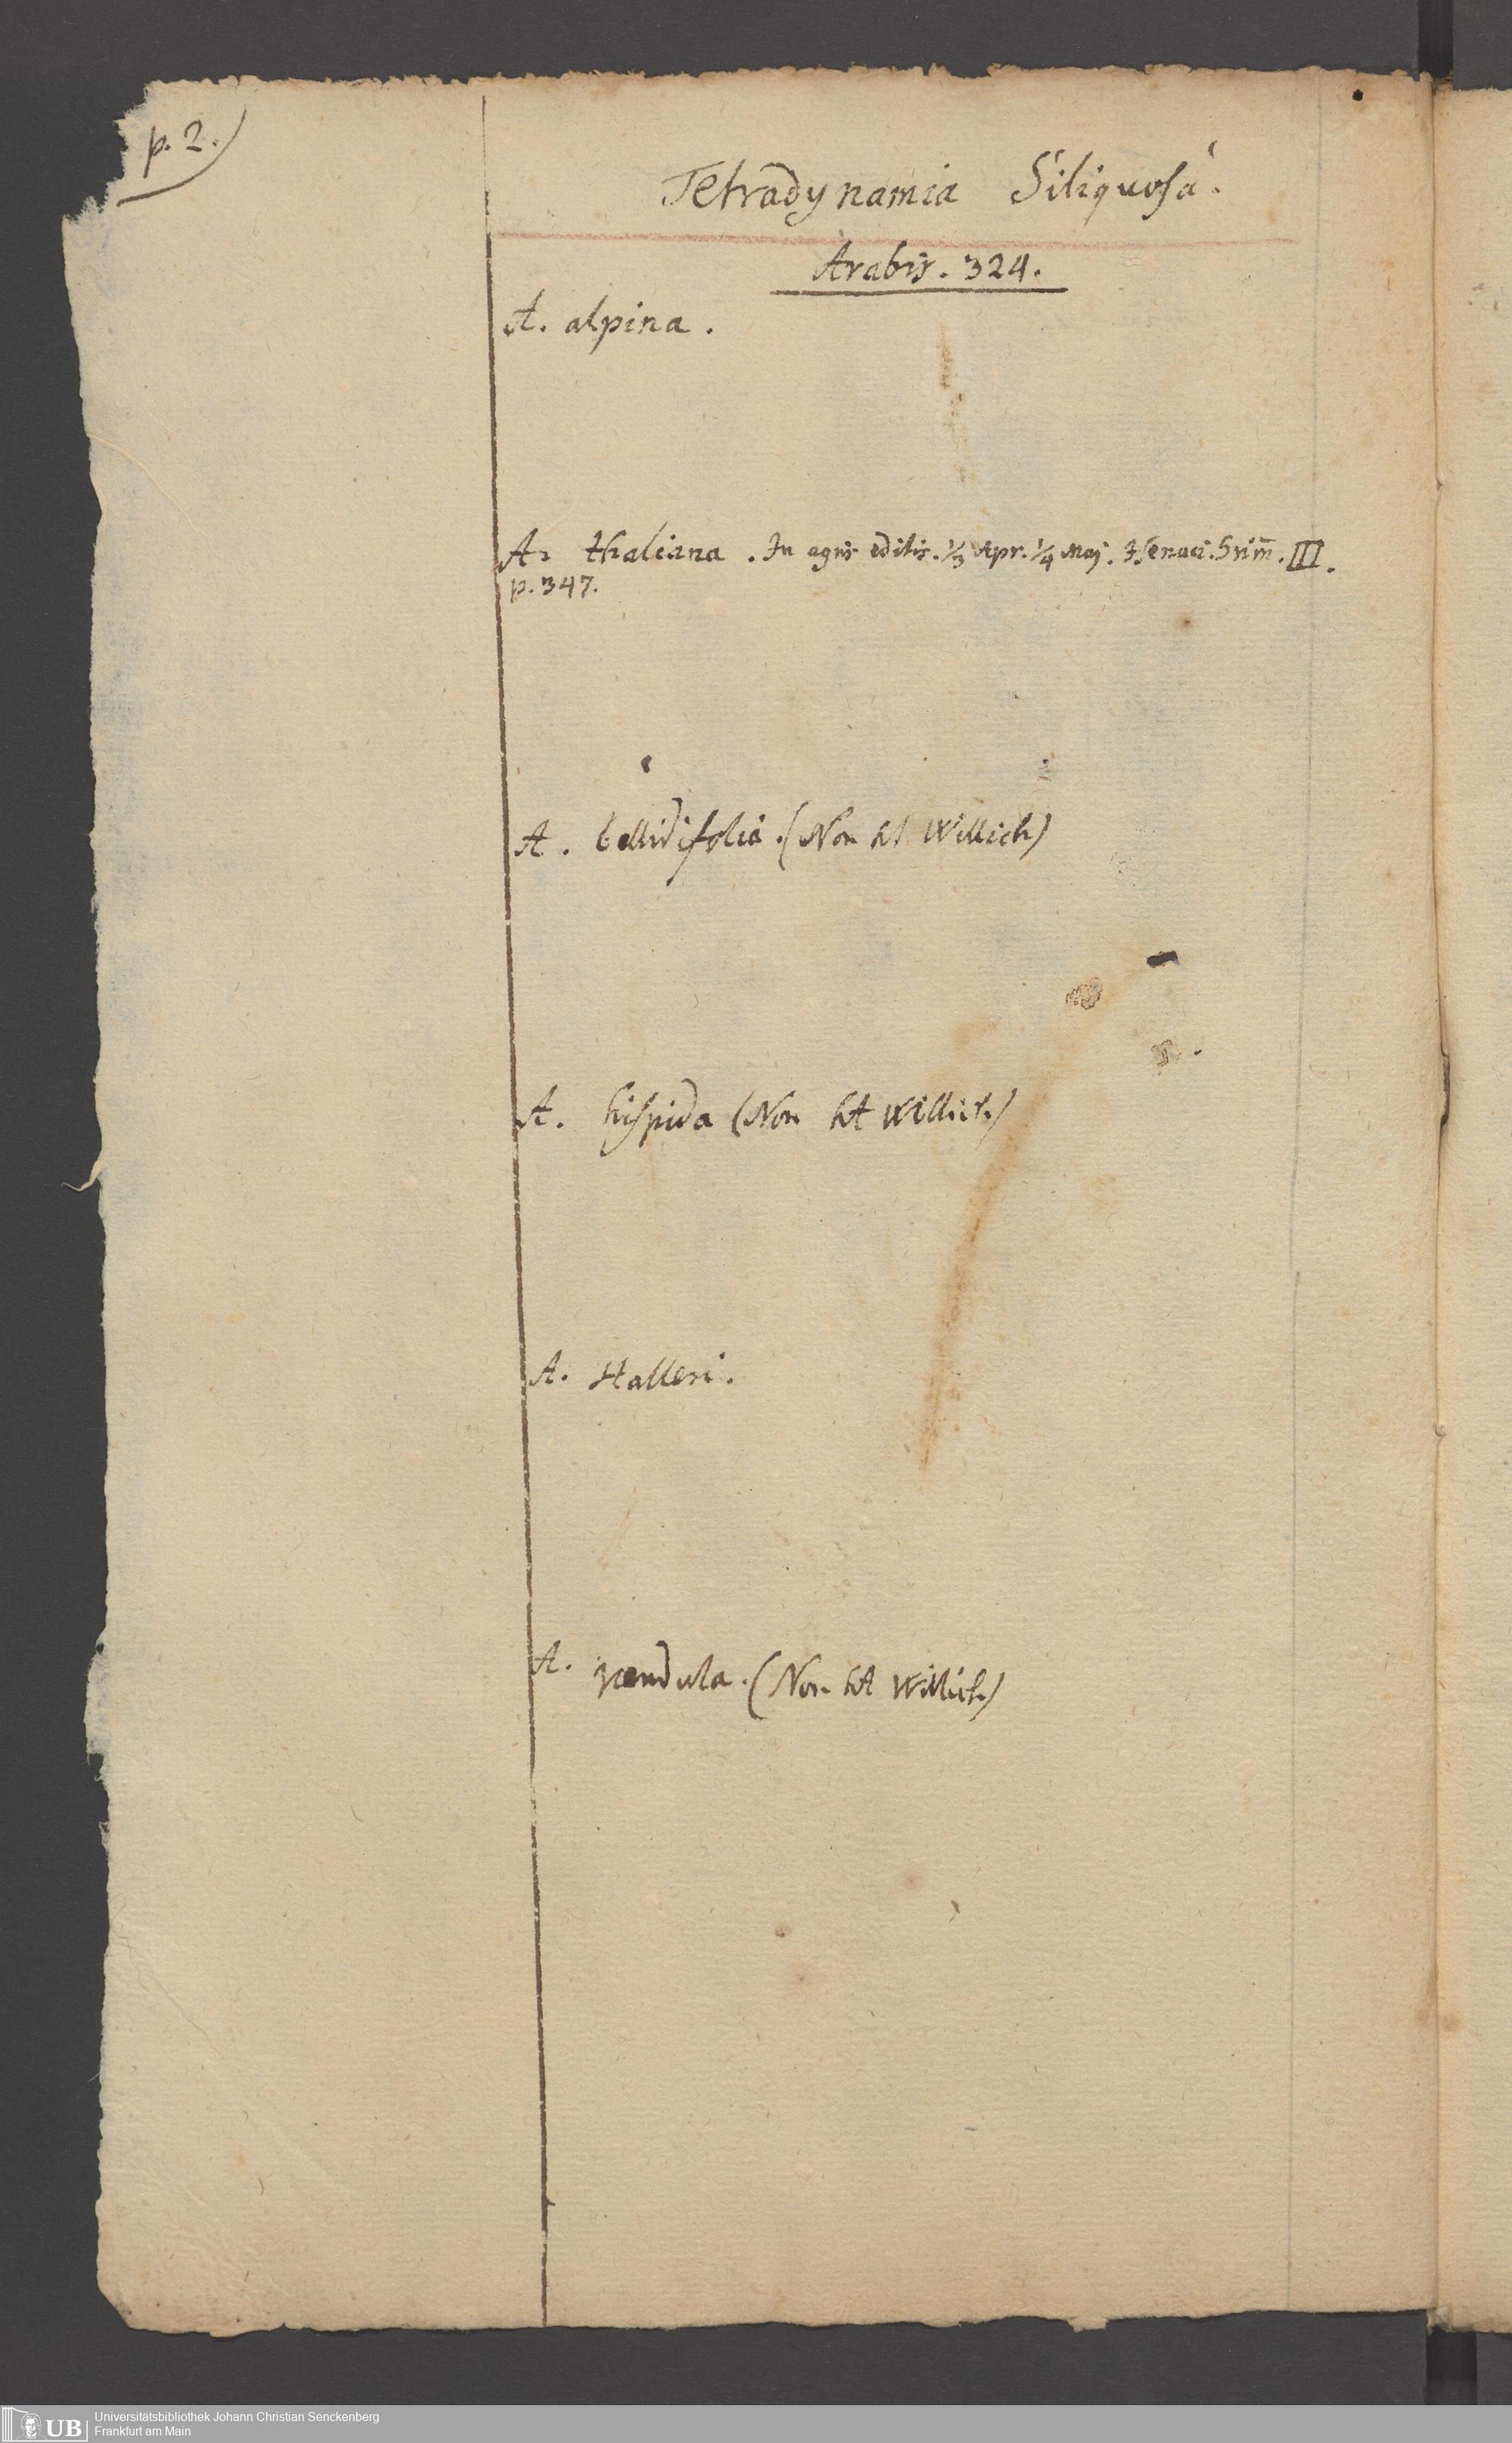 p. 2.)
Tetradynamia Siliquosa.
Arabis. 324.
A. alpina.
A. thaliana. In agris editis. 1/3 Apr. 1/4 Maj. III.
p. 347.
A. bellidifolia. (Non ht Willich)
A. hispida (Non ht Willich)
A. Halleri.
A. pendula. (Non ht Willich)
UB Universitätsbibliothek Johann Christian Senckenberg
Frankfurt am Main